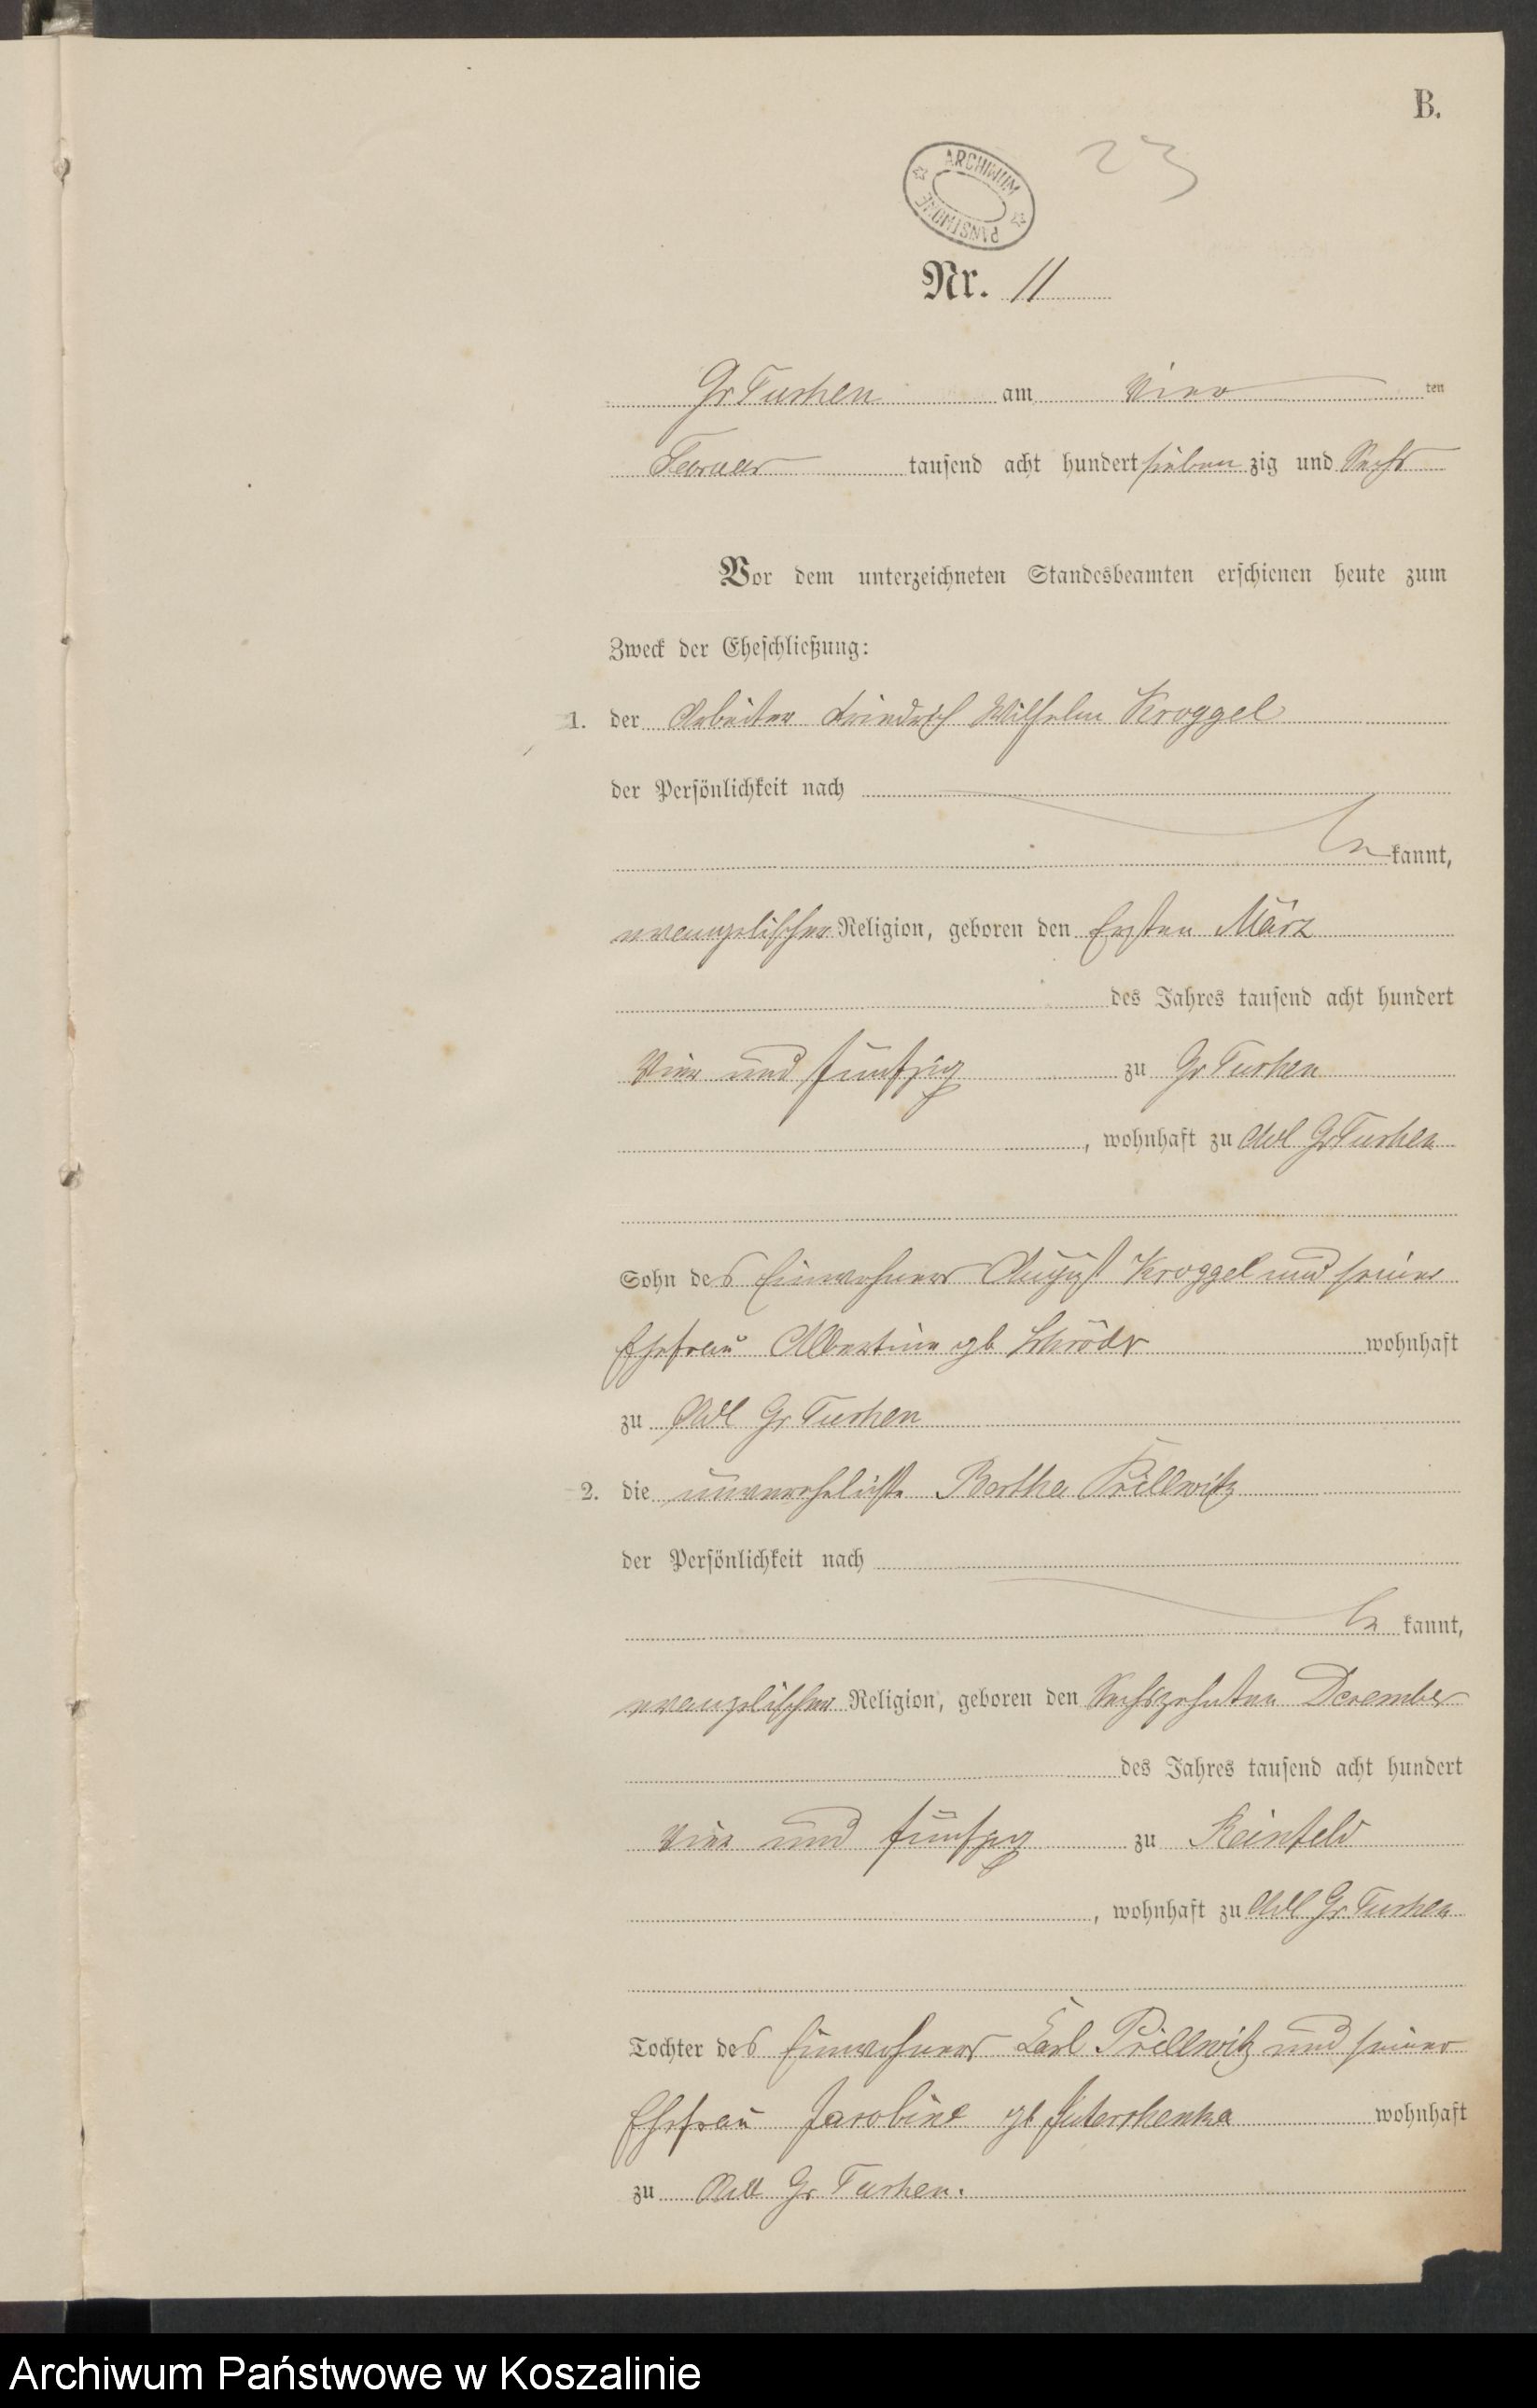 B.
23
ARCHIWUM PAŃSTWOWE
Nr. 11
Gr Tuchen am Vier ten
Februar tausend acht hundert sieben zig und Sechs
Vor dem unterzeichneten Standesbeamten erschienen heute zum
Zweck der Eheschließung:
1. der Arbeiter Friedrich Wilhelm Kroggel
der Persönlichkeit nach
be kannt,
evangelischer Religion, geboren den Ersten März
des Jahres tausend acht hundert
Vier und fünfzig zu Gr Tuchen
, wohnhaft zu Adl Gr Tuchen
Sohn des Einwohner August Kroggel und seiner
Ehefrau Albertine gb Schröder wohnhaft
zu Adl Gr Tuchen
2. die unverehelichte Bertha Prillwitz
der Persönlichkeit nach
be kannt,
evangelischer Religion, geboren den Sechszehnten December
des Jahres tausend acht hundert
vier und fünfzig zu Reinfeld
, wohnhaft zu Adl Gr Tuchen
Tochter des Einwohners Carl Prillwitz und seiner
Ehefrau Jacobine gb wohnhaft
zu Adl Gr Tuchen.
Archiwum Państwowe w Koszalinie